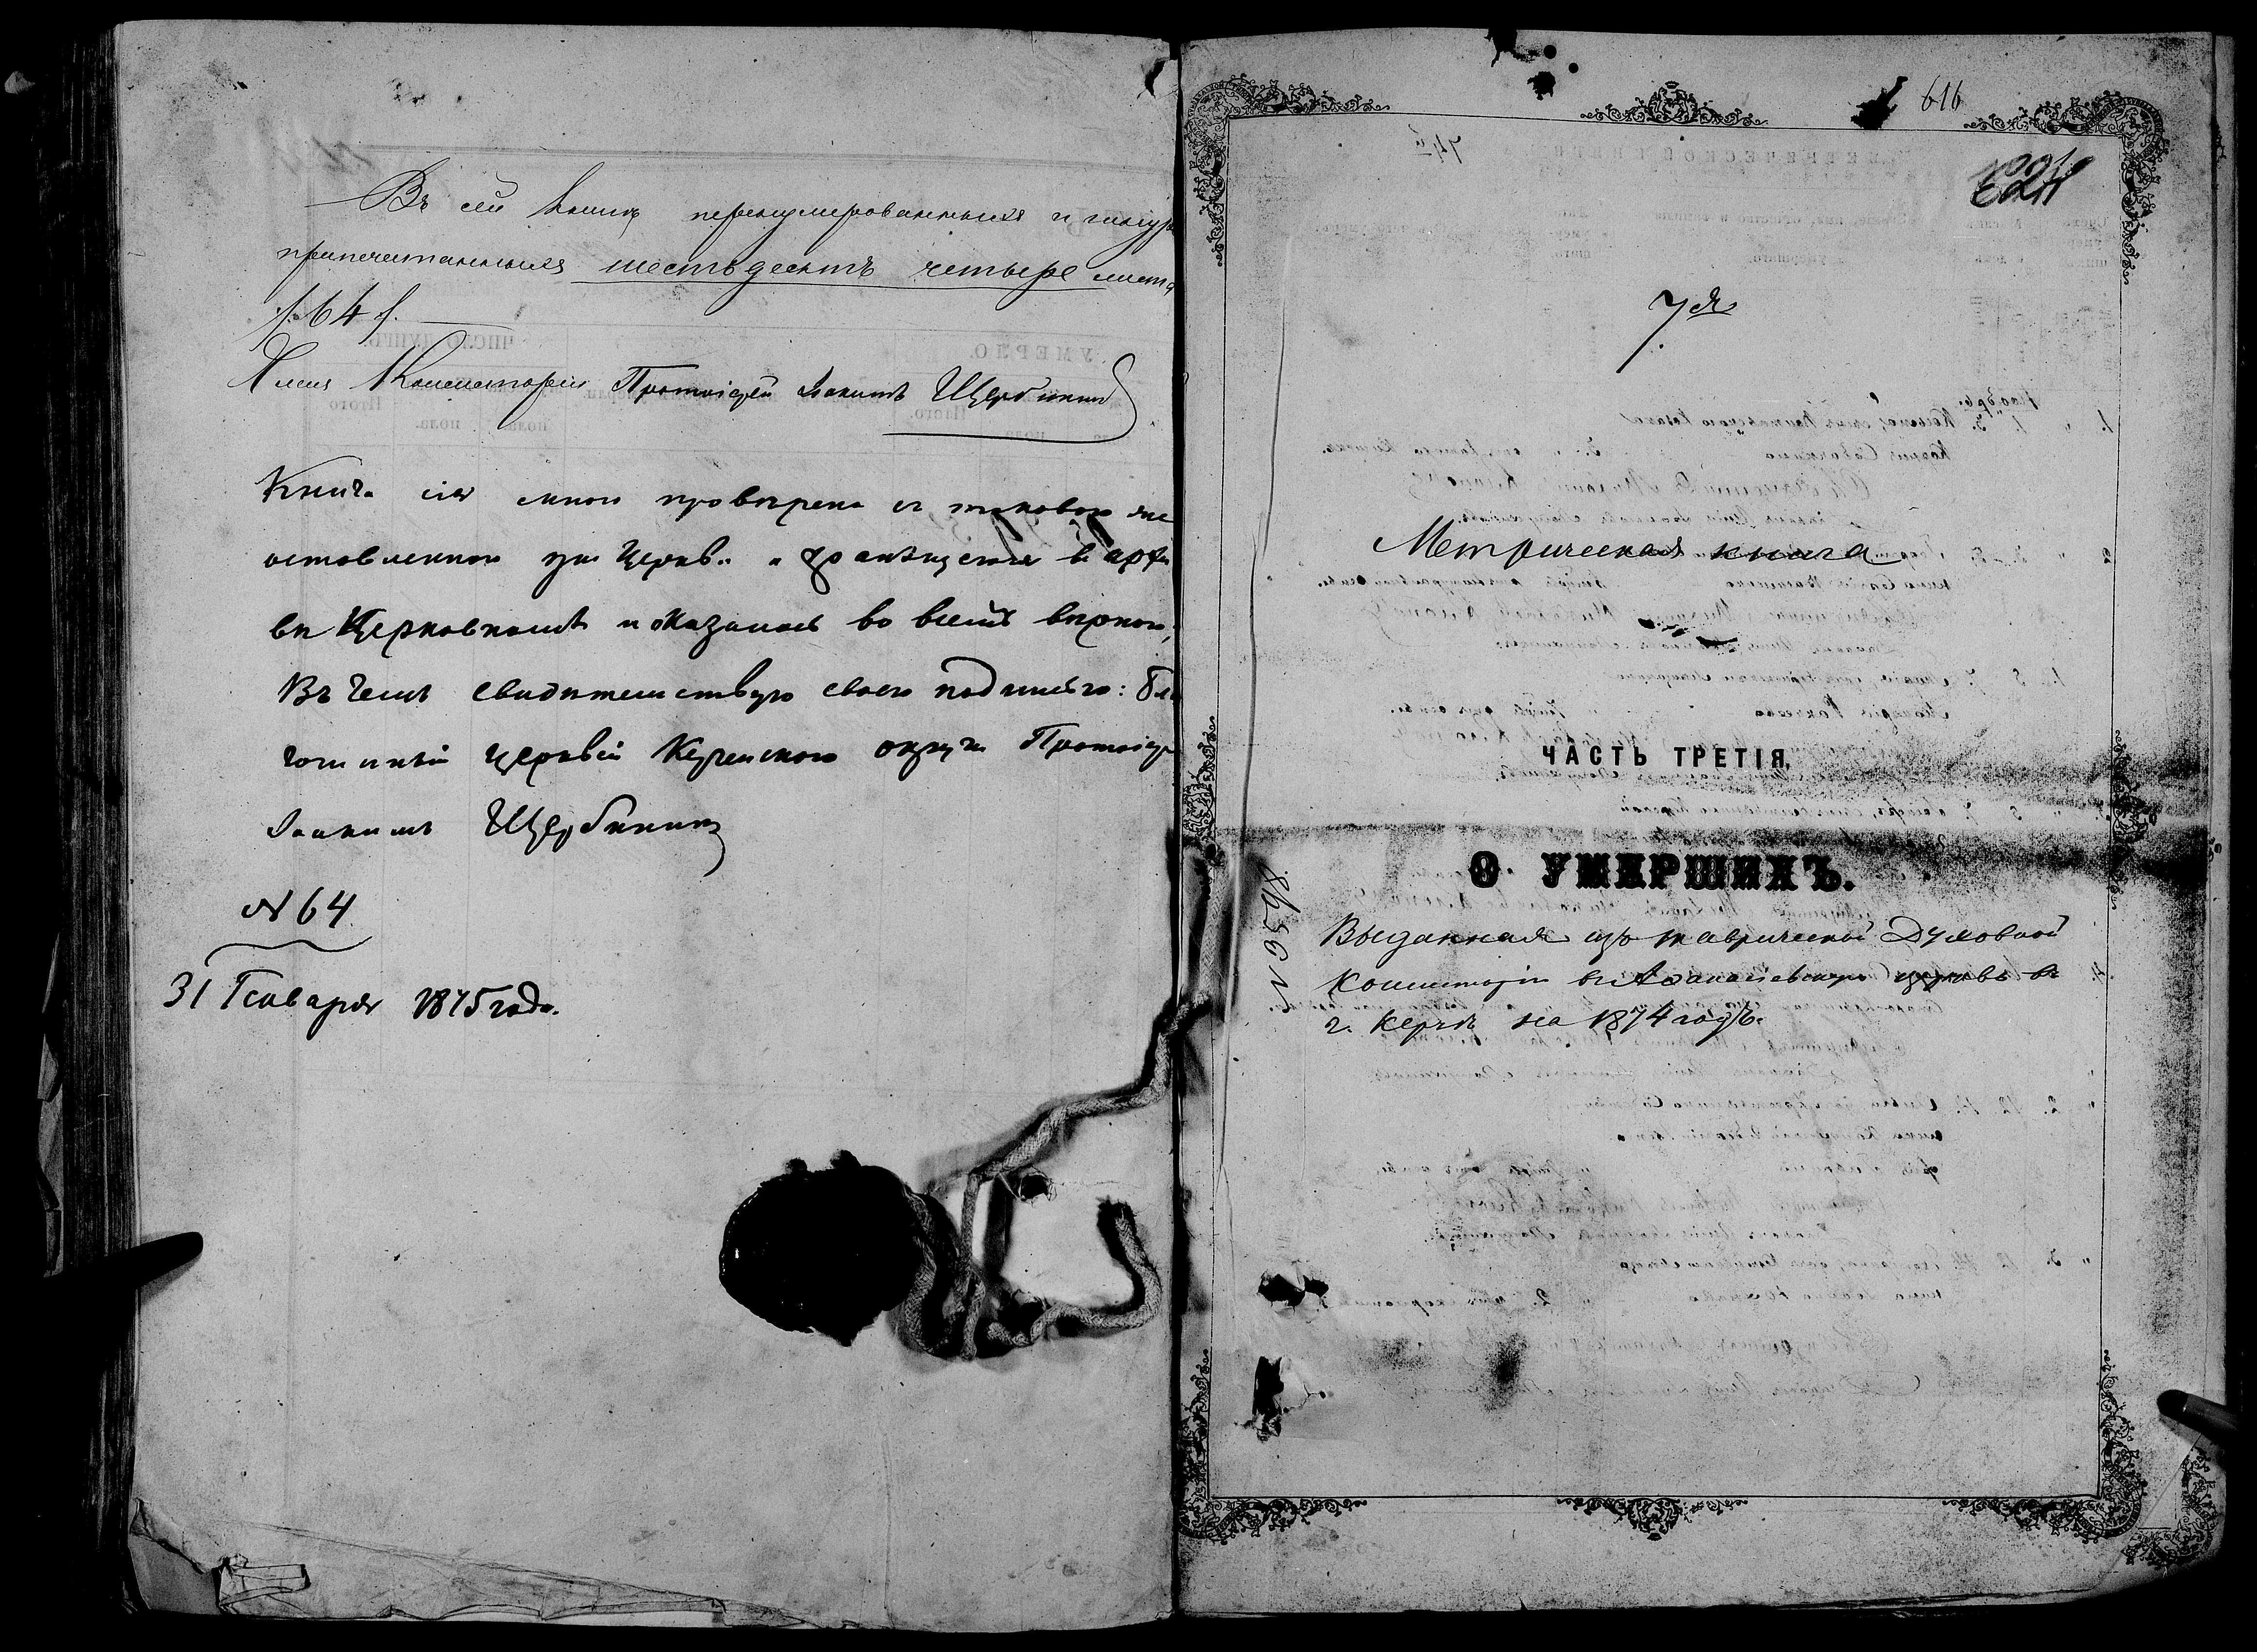 Въ сей книгѣ перенумерованныхъ и шнур
припечатанныхъ шестьдесятъ четыре листа
/:64:/.
Членъ Консисторіи Протоіерей Іоакимъ Щербининъ
Книга сія мною провѣрена съ таковою же
оставленною при Церкви и хранящеюся въ архи
вѣ Церковномъ и оказалась во всемъ вѣрною,
Въ чемъ свидѣтельствую своею подписью: Бла
гочинный церквей Керченскаго округа Протоіере
Іоакимъ Щербининъ
№ 64
31 Генваря 1875 года.
616
624
7я
Метрическая книга
ЧАСТЬ ТРЕТІЯ,
О УМЕРШИХЪ.
№ 3598.
Выданная изъ Таврической Духовной
Консисторіи въ Аѳанасіевскую церковь въ
г. Керчь на 1874 годъ.